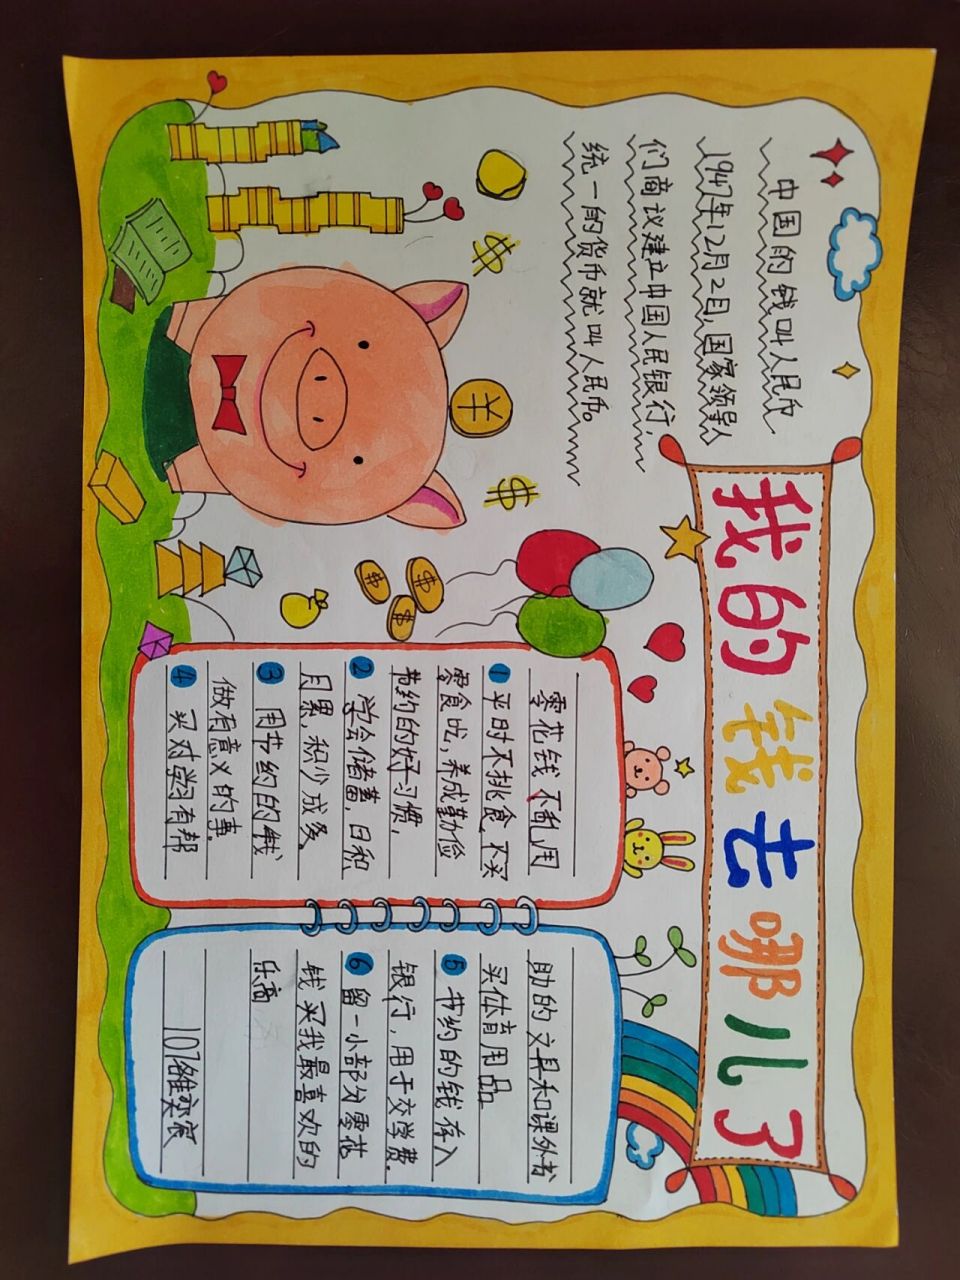 我的钱去哪儿了
中国的钱叫人民币
1947年12月2日,国家领导人
们商议建立中国人民银行,
统一的货币就叫人民币。
零花钱不乱用
1 平时不挑食,不买
零食吃,养成勤俭
节约的好习惯,
2 学会储蓄,日积
月累,积少成多。
3 用节约的钱
做有意义的事。
4 买对学习有帮
助的文具和课外书
买体育用品
5 节约的钱存入
银行,用于交学费。
6 留一小部分零花
钱买我最喜欢的
乐高
107雒奕宸